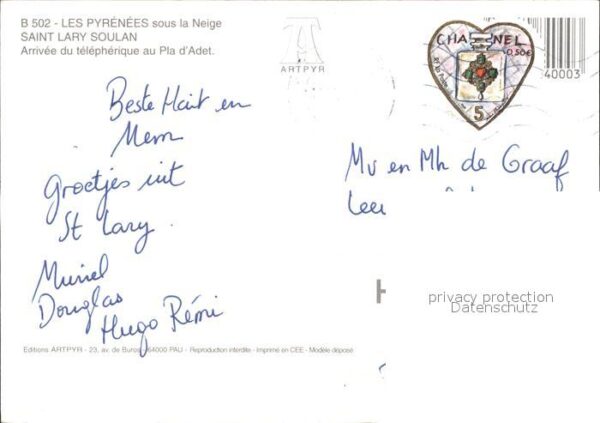 B 502 - LES PYRÉNÉES sous la Neige
SAINT LARY SOULAN
Arrivée du téléphérique au Pla d'Adet.
ARTPYR
CHANEL
0,50€
5
40003
Beste Hait en
Mem
Groetjes uit
St Lary.
Muriel
Douglas
Hugo Rémi
Mv en Mh de Graaf
Lee
privacy protection
Datenschutz
Editions ARTPYR - 23, av. de Buros - 64000 PAU - Reproduction interdite - Imprimé en CEE - Modèle déposé